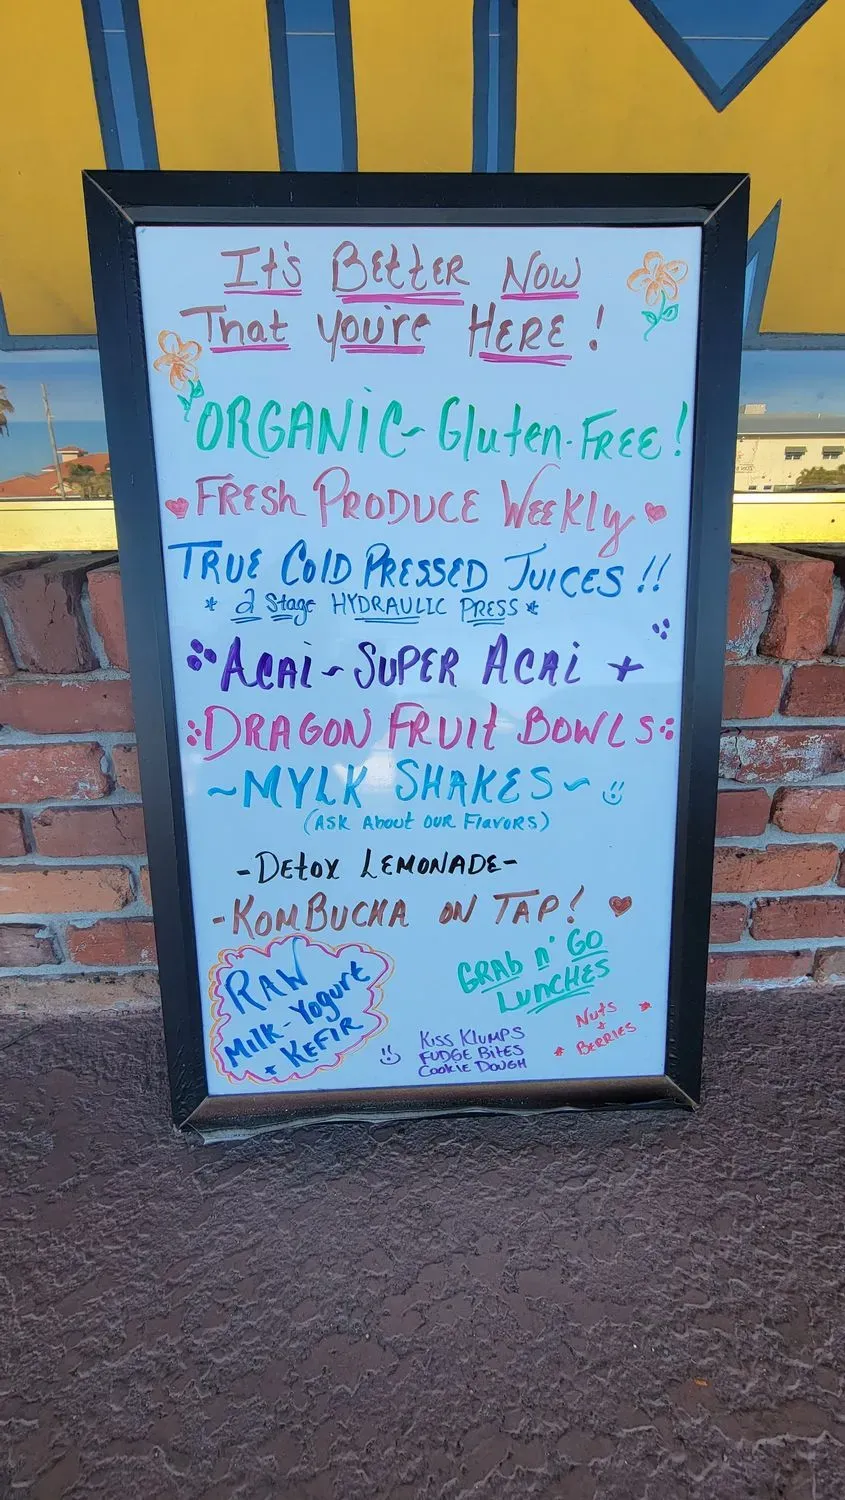 It's Better Now
That you're Here!
ORGANIC~ Gluten-Free!
Fresh Produce Weekly
True Cold Pressed Juices!!
* 2 Stage Hydraulic Press *
Acai ~ Super Acai +
Dragon Fruit Bowls
~MYLK SHAKES~
(Ask About our Flavors)
-Detox Lemonade-
-Kombucha on Tap!
Raw
Milk-Yogurt
+ Kefir
Grab n' Go
Lunches
Kiss Klumps
Fudge Bites
Cookie Dough
Nuts
+
* Berries *